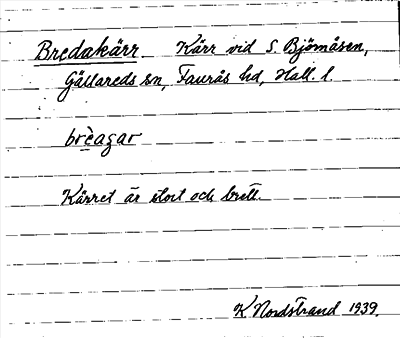 Bredakärr Kärr vid S. Björnåsen,
Gällareds sn, Faurås hd, Hall. l.
brèagar
Kärret är stort och brett.
K. Nordstrand 1939.